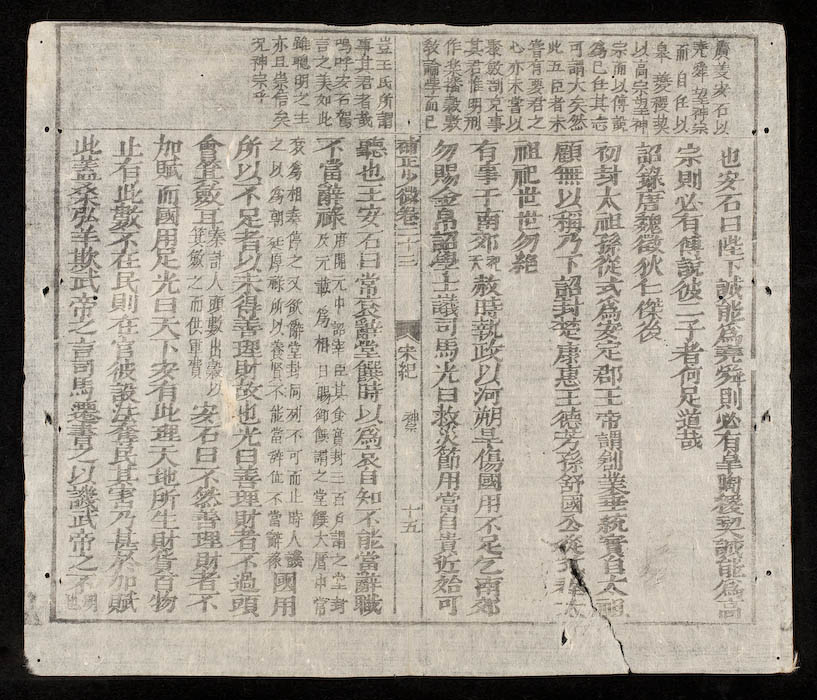 廣義安石以
堯舜望神宗
而自任以
皐夔稷契
以高宗望神
宗而以傅說
為己任其志
可謂大矣然
此五臣者未
嘗有要君之
心亦未嘗以
聚斂剥克事
其君惟明刑
作樂播穀敷
敎論學而已
也安石曰陛下誠能爲堯舜則必有皐陶稷契誠能爲高
宗則必有傅說彼二子者何足道哉
詔錄唐魏徵狄仁傑後
初封太祖孫從式爲安定郡王帝謂創業垂統實自太祖
顧無以稱乃下詔封楚康惠王德芳孫舒國公從式
祖祀世世勿絕
有事于南郊赦時執政以河朔旱傷國用不足乞南郊
勿賜金帛詔學士議司馬光曰救災節用當自貴近始可
補正少微卷二十三 宋紀 神宗 十五
豈王氏所謂
事其君者哉
嗚呼安石駕
言之美如此
雖聰明之主
亦且崇信矣
况神宗乎
聽也王安石曰常袞辭堂饌時以爲袞自知不能當辭職
不當辭祿唐開元中詔宰臣共食實封三百戶謂之堂封及元載爲相日賜御饌謂之堂饌大曆中常
袞爲相奏停之又欲辭堂封同列不可而止時人譏之以爲朝廷厚祿所以養賢不能當辭位不當辭祿國用
所以不足者以未得善理財故也光曰善理財者不過頭
會箕斂耳秦詩人頭數出穀以箕斂之而供軍費安石曰不然善理財者不
加賦而國用足光曰天下安有此理天地所生財貨百物
止有此數不在民則在官彼設法奪民其害乃甚於加賦
此蓋桑弘羊欺武帝之言司馬遷書之以譏武帝之不明也